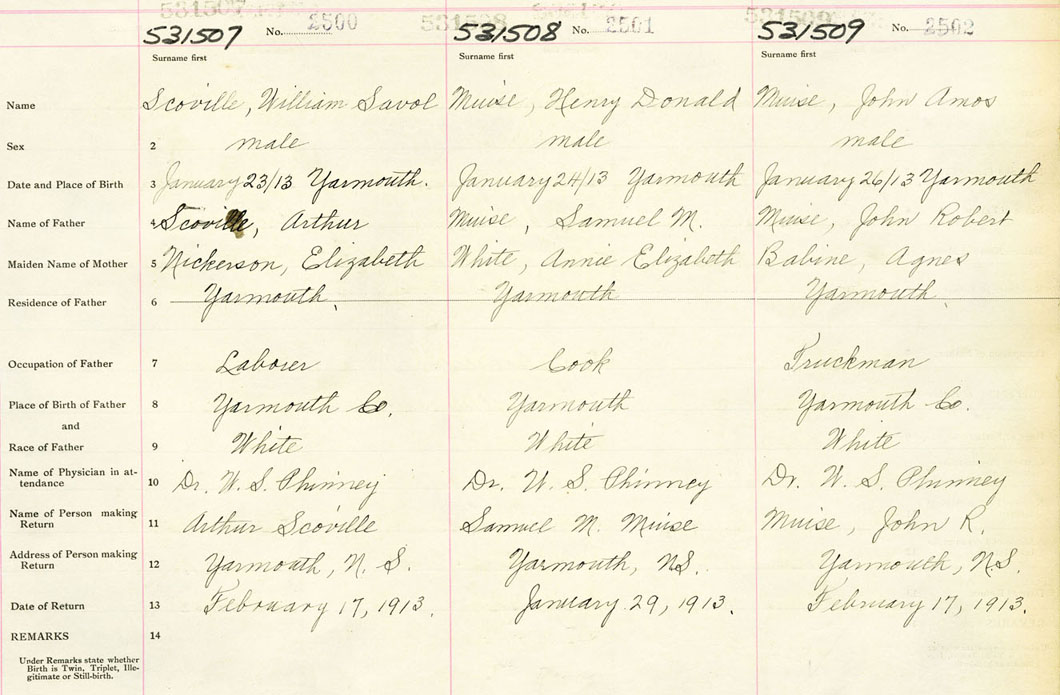 531507 No. 2500 531508 No. 2501 531509 No. 2502
Surname first Surname first Surname first
Name Scoville, William Savol Muise, Henry Donald Muise, John Amos
Sex 2 male male male
Date and Place of Birth 3 January 23/13 Yarmouth. January 24/13 Yarmouth January 26/13 Yarmouth
Name of Father 4 Scoville, Arthur Muise, Samuel M. Muise, John Robert
Maiden Name of Mother 5 Nickerson, Elizabeth White, Annie Elizabeth Babine, Agnes
Residence of Father 6 Yarmouth. Yarmouth Yarmouth.
Occupation of Father 7 Laborer Cook Truckman
Place of Birth of Father 8 Yarmouth Co. Yarmouth Yarmouth Co.
and
Race of Father 9 White White White
Name of Physician in at-
tendance 10 Dr. W. S. Phinney Dr. W. S. Phinney Dr. W. S. Phinney
Name of Person making
Return 11 Arthur Scoville Samuel M. Muise Muise, John R.
Address of Person making
Return 12 Yarmouth, N. S. Yarmouth, NS. Yarmouth, NS.
Date of Return 13 February 17, 1913. January 29, 1913. February 17, 1913.
REMARKS 14
Under Remarks state whether
Birth is Twin, Triplet, Ille-
gitimate or Still-birth.